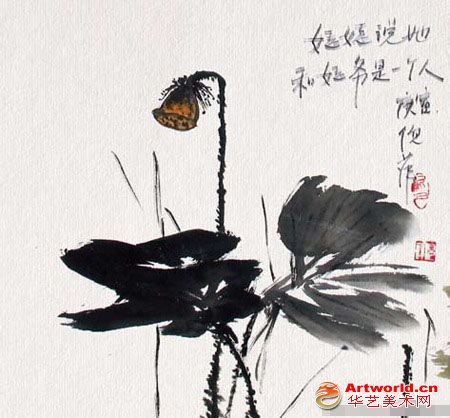 姥姥说她
和姥爷是一个人
庚寅
倪萍
Artworld.cn
华艺美术网